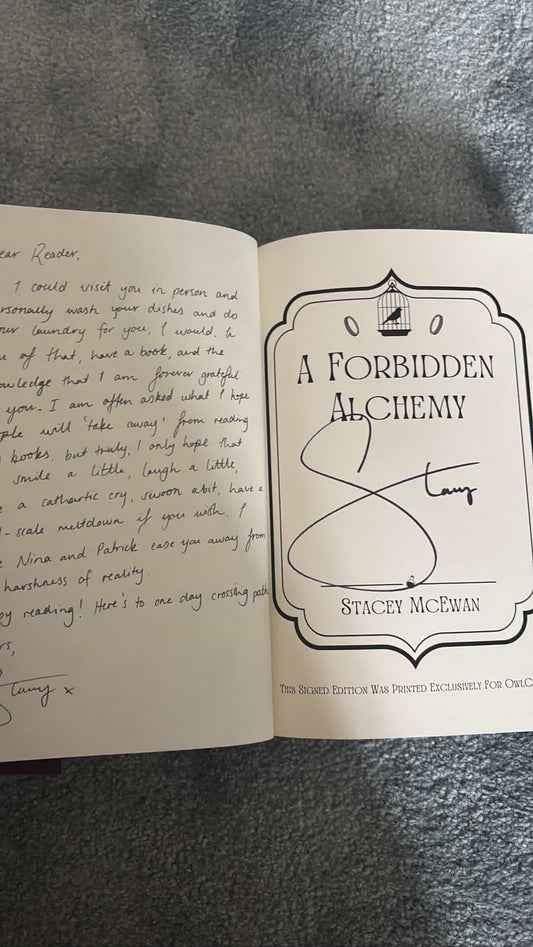 ear Reader,
I could visit you in person and
ersonally wash your dishes and do
our laundry for you, I would. In
u of that, have a book, and the
owledge that I am forever grateful
you. I am often asked what I hope
ople will 'take away' from reading
books, but truly, I only hope that
smile a little, laugh a little,
e a cathartic cry, swoon a bit, have a
l-scale meltdown if you wish. I
e Nina and Patrick ease you away from
harshness of reality.
py reading! Here's to one day crossing paths
rs,
Stacey x
A FORBIDDEN
ALCHEMY
Stacey
STACEY MCEWAN
THIS SIGNED EDITION WAS PRINTED EXCLUSIVELY FOR OWLC